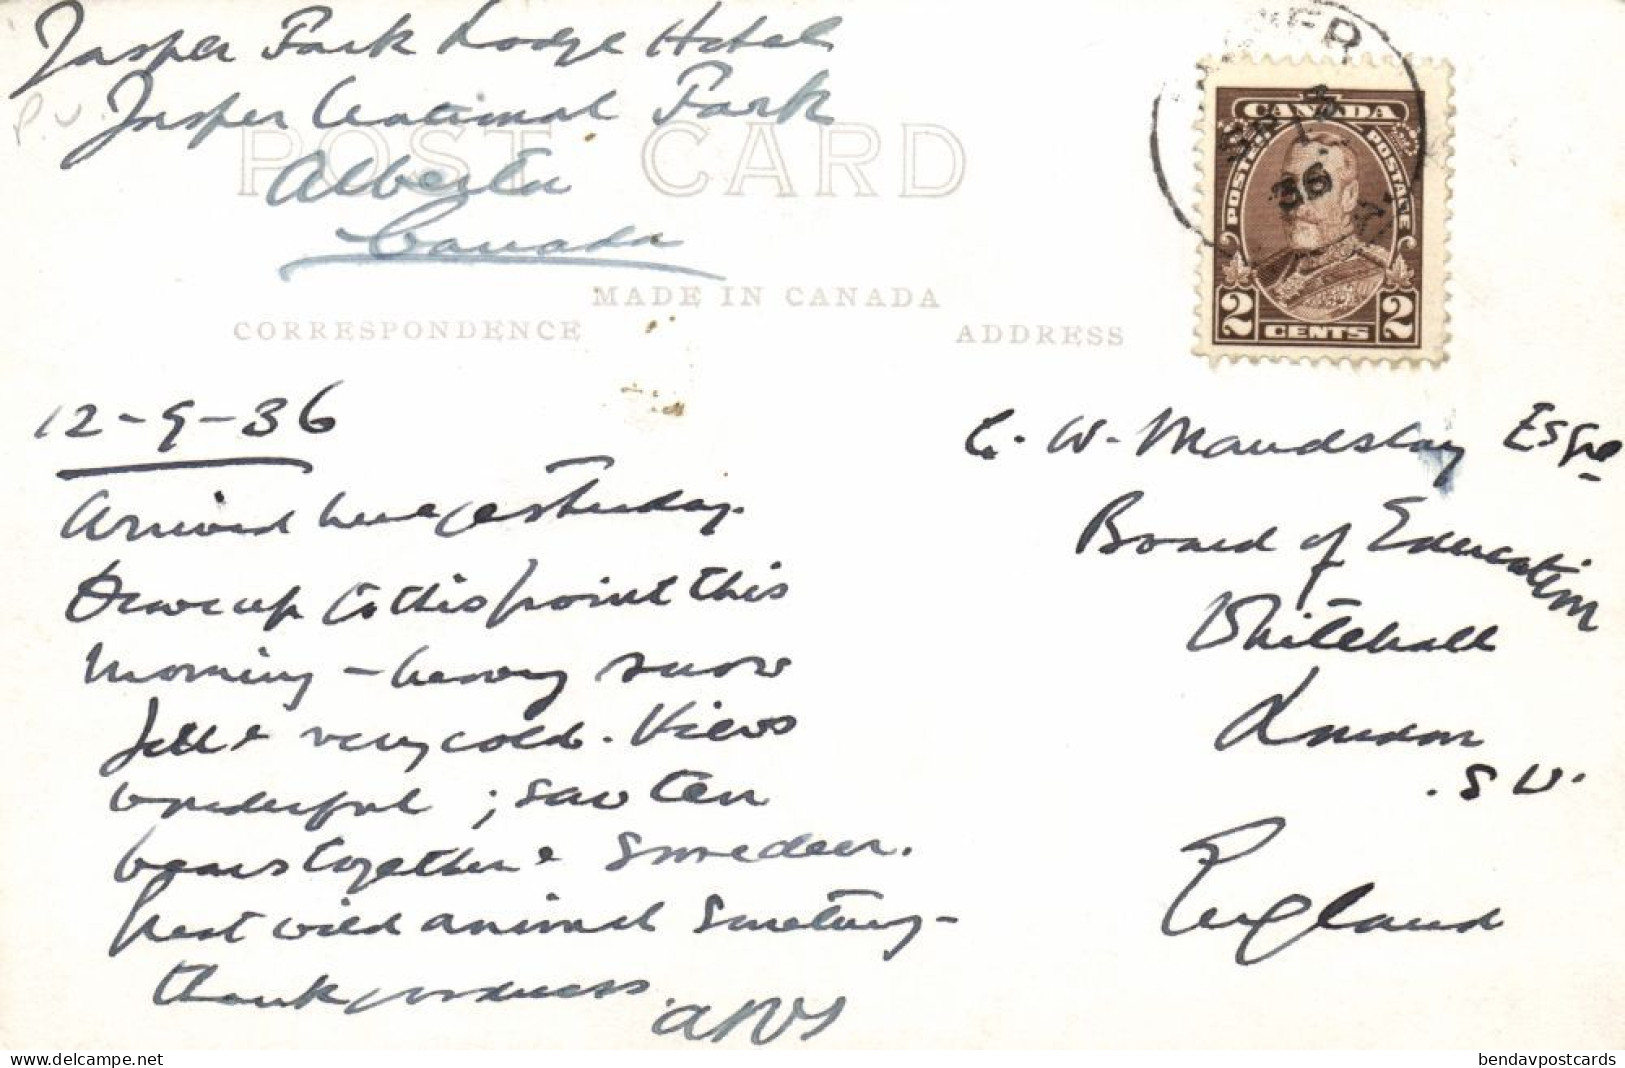 Jasper Park Lodge Hotel
Jasper National Park
Alberta
Canada
POST CARD
MADE IN CANADA
CORRESPONDENCE
ADDRESS
CANADA
POSTES POSTAGE
2 CENTS 2
36
12-9-36
Arrived here yesterday.
Drove up to this point this
morning - heavy snow
fell & very cold. Views
wonderful ; saw ten
bears together & some deer.
next wild animal
thank goodness.
C. W. Maudslay Esqre
Board of Education
Whitehall
London
. S W.
England
bendav.delcampe.net
bendavpostcards